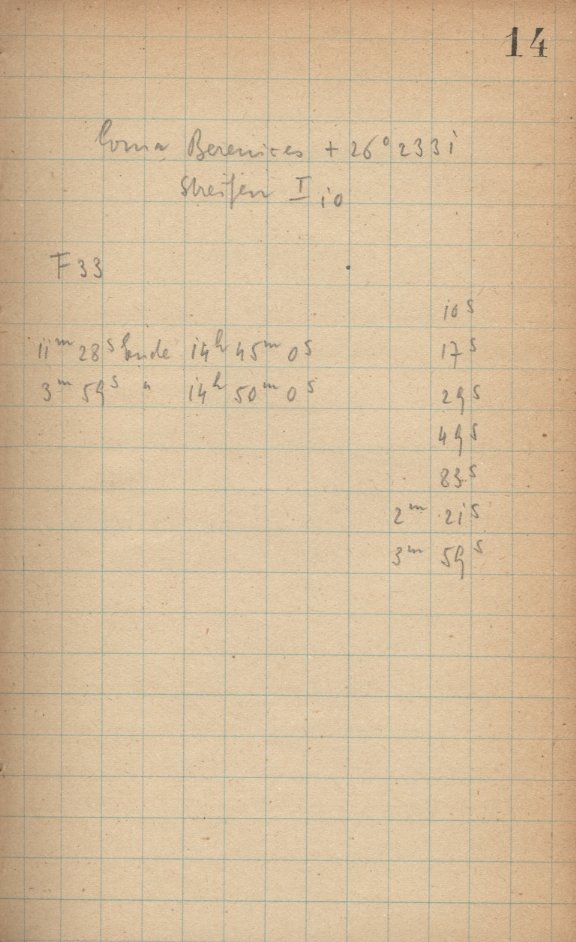 14
Coma Berenices + 26° 2331
Streifen I 10
F 33
10 s
11 m 28 s Ende 14 h 45 m 0 s 17 s
3 m 59 s " 14 h 50 m 0 s 29 s
49 s
83 s
2 m 21 s
3 m 59 s